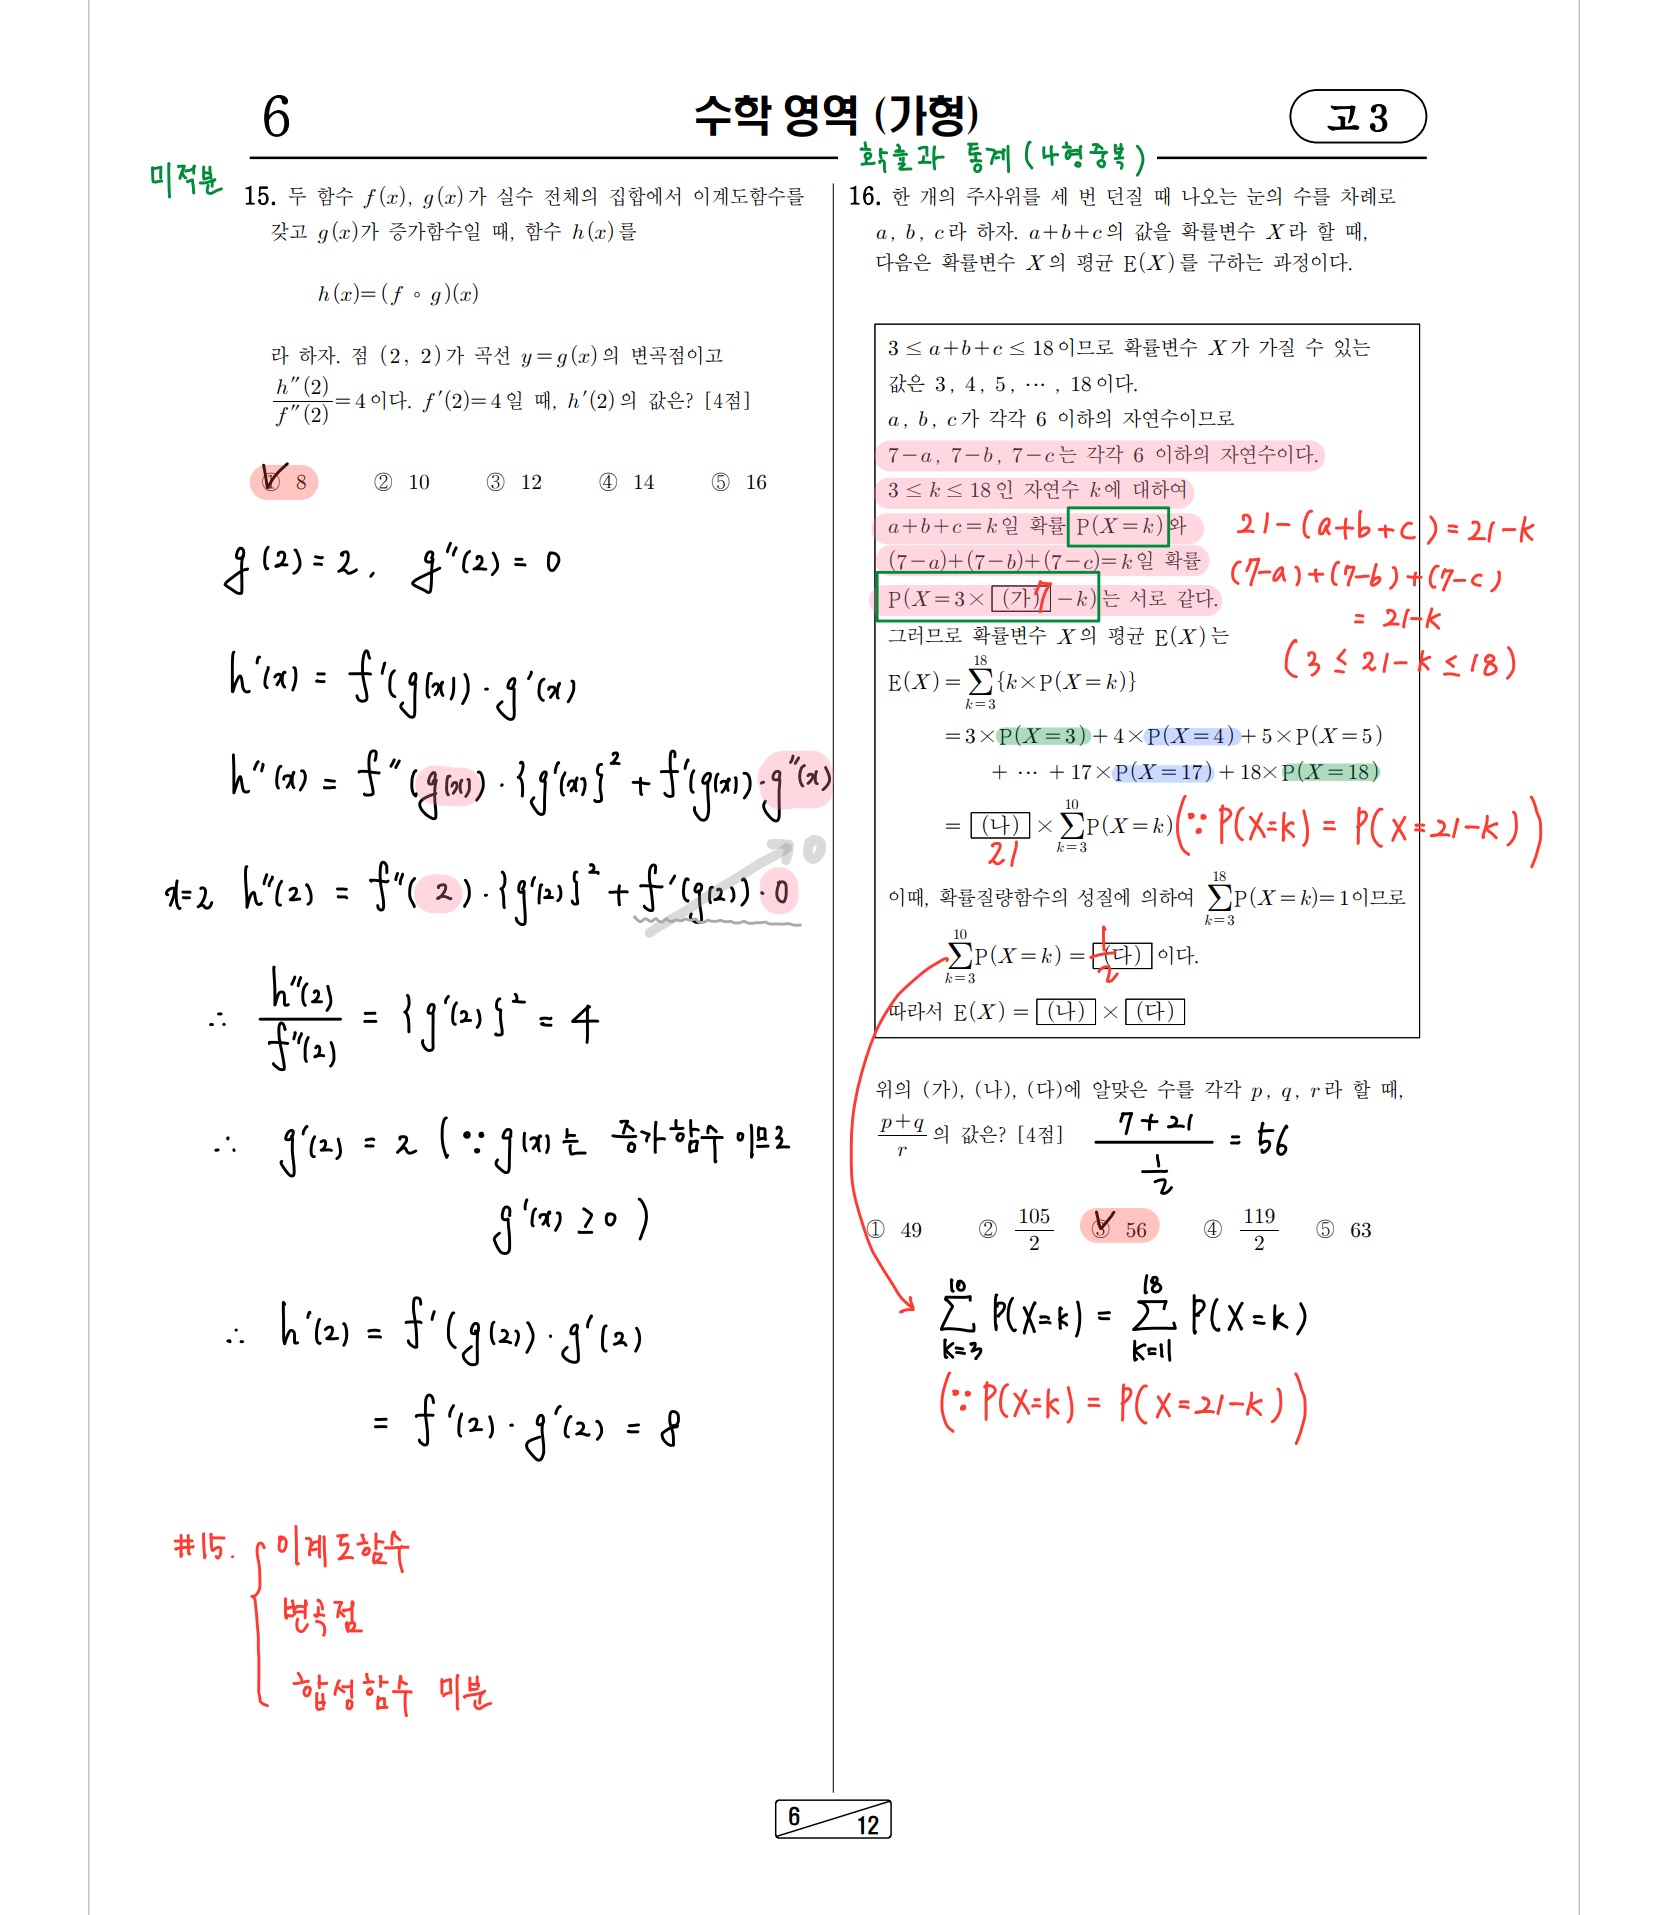 6
수학 영역 (가형)
고 3
미적분
15. 두 함수 f(x), g(x)가 실수 전체의 집합에서 이계도함수를
갖고 g(x)가 증가함수일 때, 함수 h(x)를
h(x)=(f∘g)(x)
라 하자. 점 (2, 2)가 곡선 y=g(x)의 변곡점이고
h″(2)/f″(2)=4이다. f′(2)=4일 때, h′(2)의 값은? [4점]
① 8 ② 10 ③ 12 ④ 14 ⑤ 16
g(2)=2, g″(2)=0
h′(x) = f′(g(x))·g′(x)
h″(x) = f″(g(x))·{g′(x)}² + f′(g(x))·g″(x)
0
x=2 h″(2) = f″(2)·{g′(2)}² + f′(g(2))·0
∴ h″(2)/f″(2) = {g′(2)}² = 4
∴ g′(2) = 2 (∵ g(x)는 증가함수이므로
g′(x) ≥ 0)
∴ h′(2) = f′(g(2))·g′(2)
= f′(2)·g′(2) = 8
#15. { 이계도함수
변곡점
합성함수 미분
확률과 통계 (나형중복)
16. 한 개의 주사위를 세 번 던질 때 나오는 눈의 수를 차례로
a, b, c라 하자. a+b+c의 값을 확률변수 X라 할 때,
다음은 확률변수 X의 평균 E(X)를 구하는 과정이다.
3≤a+b+c≤18이므로 확률변수 X가 가질 수 있는
값은 3, 4, 5, ⋯, 18이다.
a, b, c가 각각 6 이하의 자연수이므로
7-a, 7-b, 7-c는 각각 6 이하의 자연수이다.
3≤k≤18인 자연수 k에 대하여
a+b+c=k일 확률 P(X=k)와
(7-a)+(7-b)+(7-c)=k일 확률
P(X=3×(가)-k)는 서로 같다.
7
21-(a+b+c)=21-k
(7-a)+(7-b)+(7-c)
= 21-k
(3 ≤ 21-k ≤ 18)
그러므로 확률변수 X의 평균 E(X)는
E(X)=∑_{k=3}^{18}{k×P(X=k)}
=3×P(X=3)+4×P(X=4)+5×P(X=5)
+ ⋯ +17×P(X=17)+18×P(X=18)
= (나) ×∑_{k=3}^{10}P(X=k) (∵ P(X=k) = P(X=21-k))
21
이때, 확률질량함수의 성질에 의하여 ∑_{k=3}^{18}P(X=k)=1이므로
∑_{k=3}^{10}P(X=k)= (다) 이다.
1/2
따라서 E(X)= (나) × (다)
위의 (가), (나), (다)에 알맞은 수를 각각 p, q, r라 할 때,
(p+q)/r의 값은? [4점]
(7+21)/(1/2) = 56
① 49 ② 105/2 ③ 56 ④ 119/2 ⑤ 63
∑_{k=3}^{10} P(X=k) = ∑_{k=11}^{18} P(X=k)
(∵ P(X=k) = P(X=21-k))
6
12